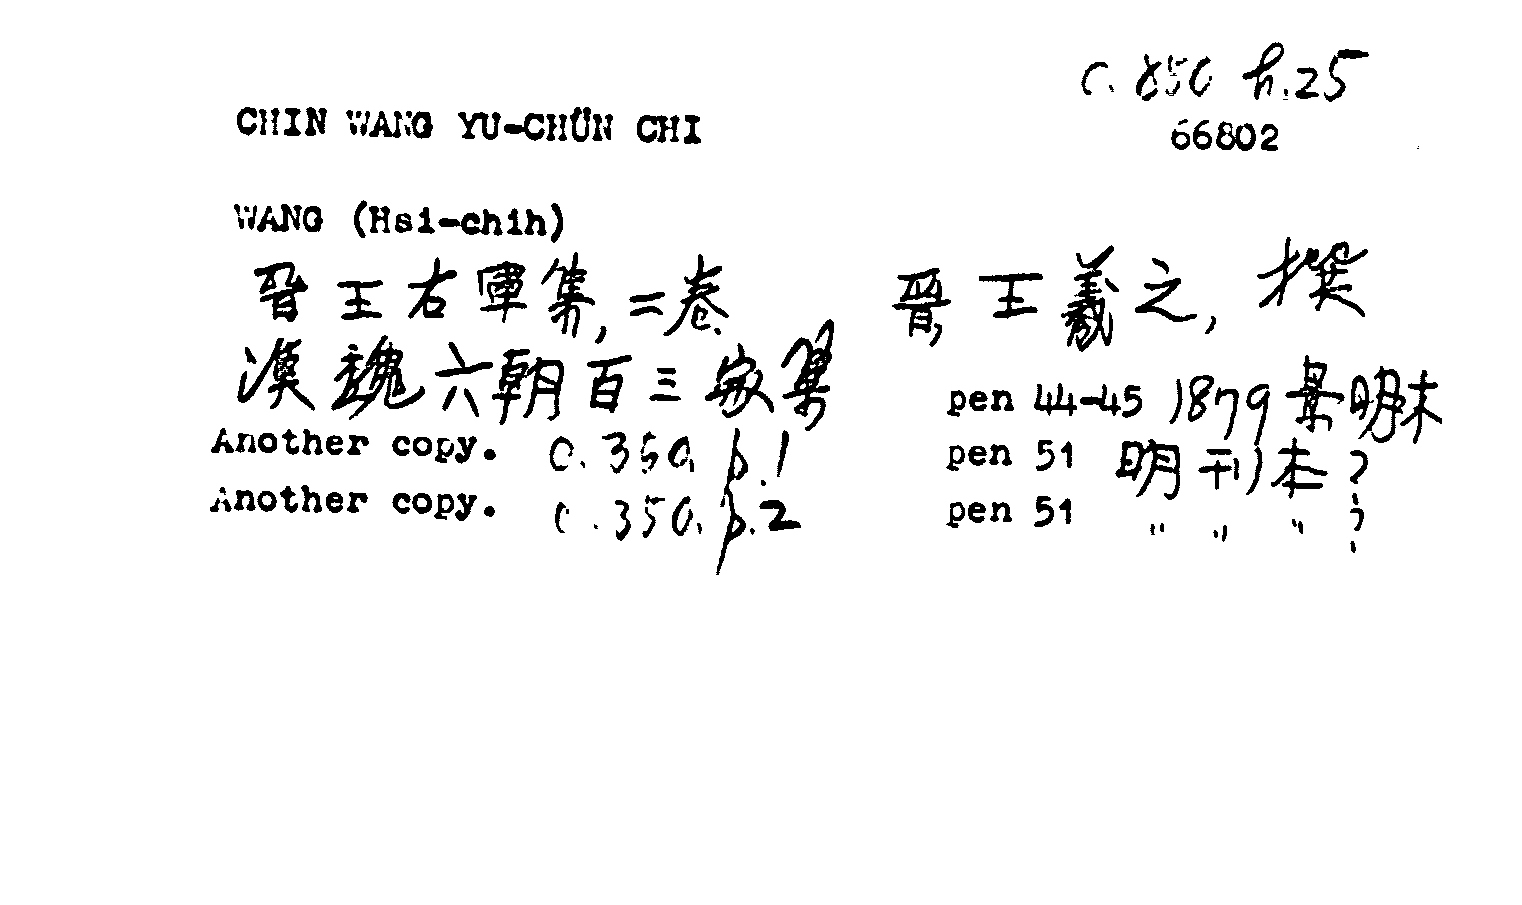 C. 850 h.25
CHIN WANG YU-CHÜN CHI
66802
WANG (Hsi-chih)
晉王右軍集, 二卷 晉王羲之, 撰
漢魏六朝百三家集 pen 44-45 1879 景明本
Another copy. C. 350. b.1 pen 51 明刊本?
Another copy. C. 350. b.2 pen 51 " " " ?